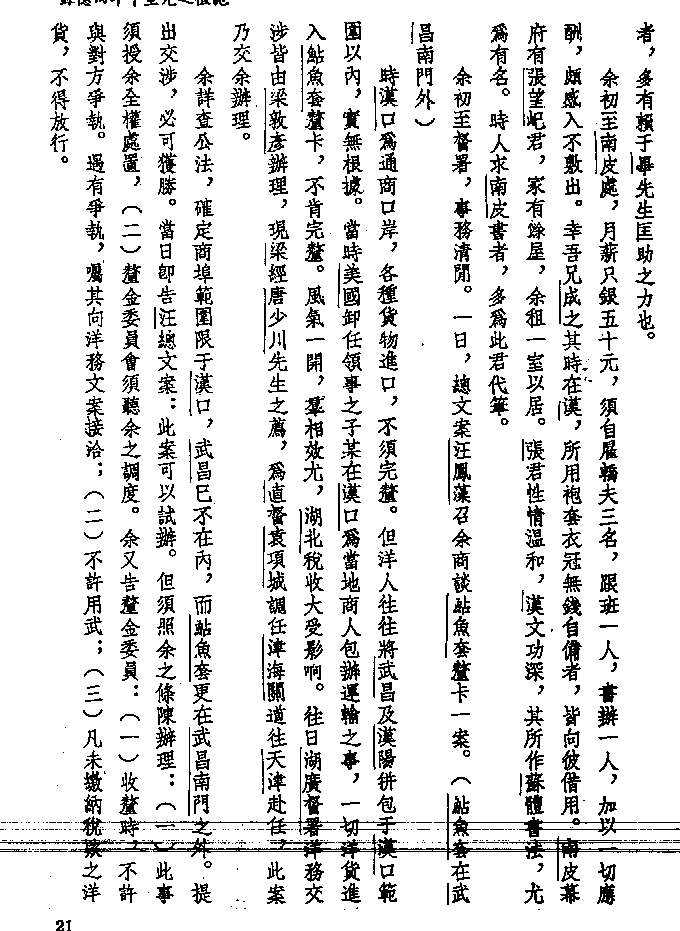 者，多有賴于畢先生匡助之力也。
余初至南皮處，月薪只銀五十元，須自雇轎夫三名，跟班一人，書辦一人，加以一切應
酬，頗感入不敷出。幸吾兄成之其時在漢，所用袍套衣冠無錢自備者，皆向彼借用。南皮幕
府有張望屺君，家有餘屋，余租一室以居。張君性情溫和，漢文功深，其所作蘇體書法，尤
爲有名。時人求南皮書者，多爲此君代筆。
余初至督署，事務清閒。一日，總文案汪鳳藻召余商談鮎魚套釐卡一案。（鮎魚套在武
昌南門外）
時漢口爲通商口岸，各種貨物進口，不須完釐。但洋人往往將武昌及漢陽併包于漢口範
圍以內，實無根據。當時美國卸任領事之子某在漢口爲當地商人包辦運輸之事，一切洋貨進
入鮎魚套釐卡，不肯完釐。風氣一開，羣相效尤，湖北稅收大受影响。往日湖廣督署洋務交
涉皆由梁敦彥辦理，現梁經唐少川先生之薦，爲直督袁項城調任津海關道往天津赴任，此案
乃交余辦理。
余詳查公法，確定商埠範圍限于漢口，武昌已不在內，而鮎魚套更在武昌南門之外。提
出交涉，必可獲勝。當日卽告汪總文案：此案可以試辦。但須照余之條陳辦理：（一）此事
須授余全權處置，（二）釐金委員會須聽余之調度。余又告釐金委員：（一）收釐時，不許
與對方爭執。遇有爭執，囑其向洋務文案接洽；（二）不許用武；（三）凡未繳納稅款之洋
貨，不得放行。
21